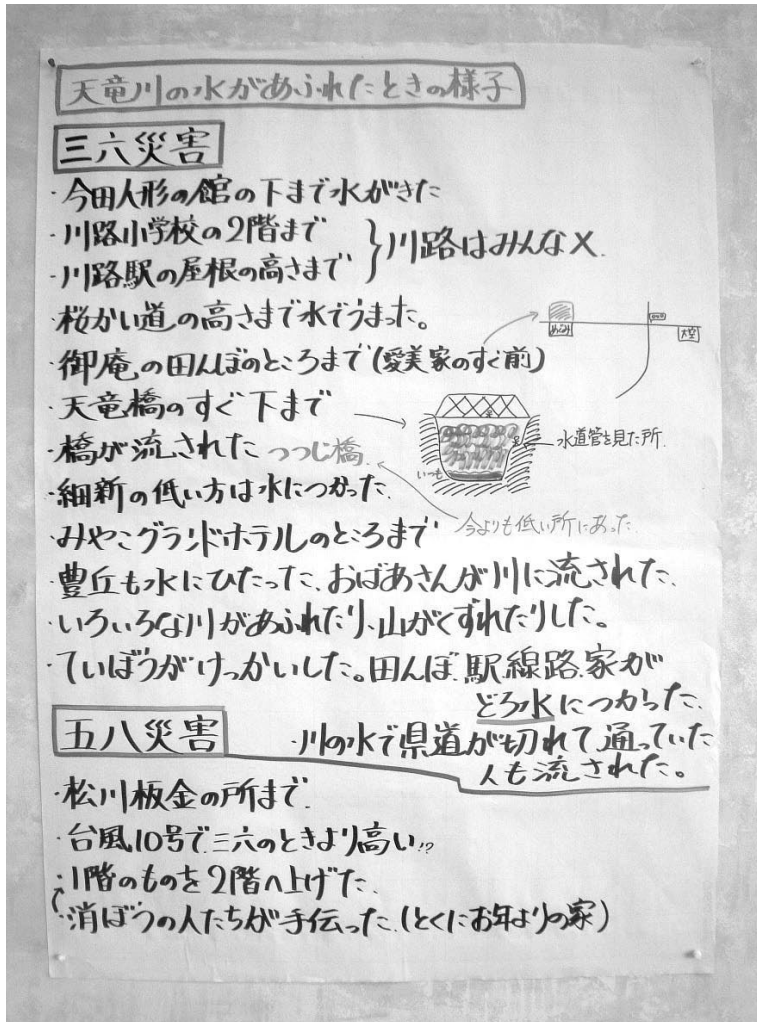 天竜川の水があふれたときの様子
三六災害
・今田人形の館の下まで水がきた
・川路小学校の2階まで
・川路駅の屋根の高さまで
川路はみんな×.
・桜かい道の高さまで水でうまった。
・御庵の田んぼのところまで(愛美家のすぐ前)
めぐみ
大空
・天竜橋のすぐ下まで
水道管を見た所.
いつも
・橋が流された つつじ橋.
今よりも低い所にあった
・細新の低い方は水につかった.
・みやこグランドホテルのところまで
・豊丘も水にひたった、おばあさんが川に流された.
・いろいろな川があふれたり、山がくずれたりした。
・ていぼうがけっかいした。田んぼ.駅.線路.家が
どろ水につかった.
・川の水で県道が切れて、通っていた
人も流された。
五八災害
・松川板金の所まで.
・台風10号で三六のときより高い!?
・1階のものを2階へ上げた.
・消ぼうの人たちが手伝った.(とくにお年よりの家)